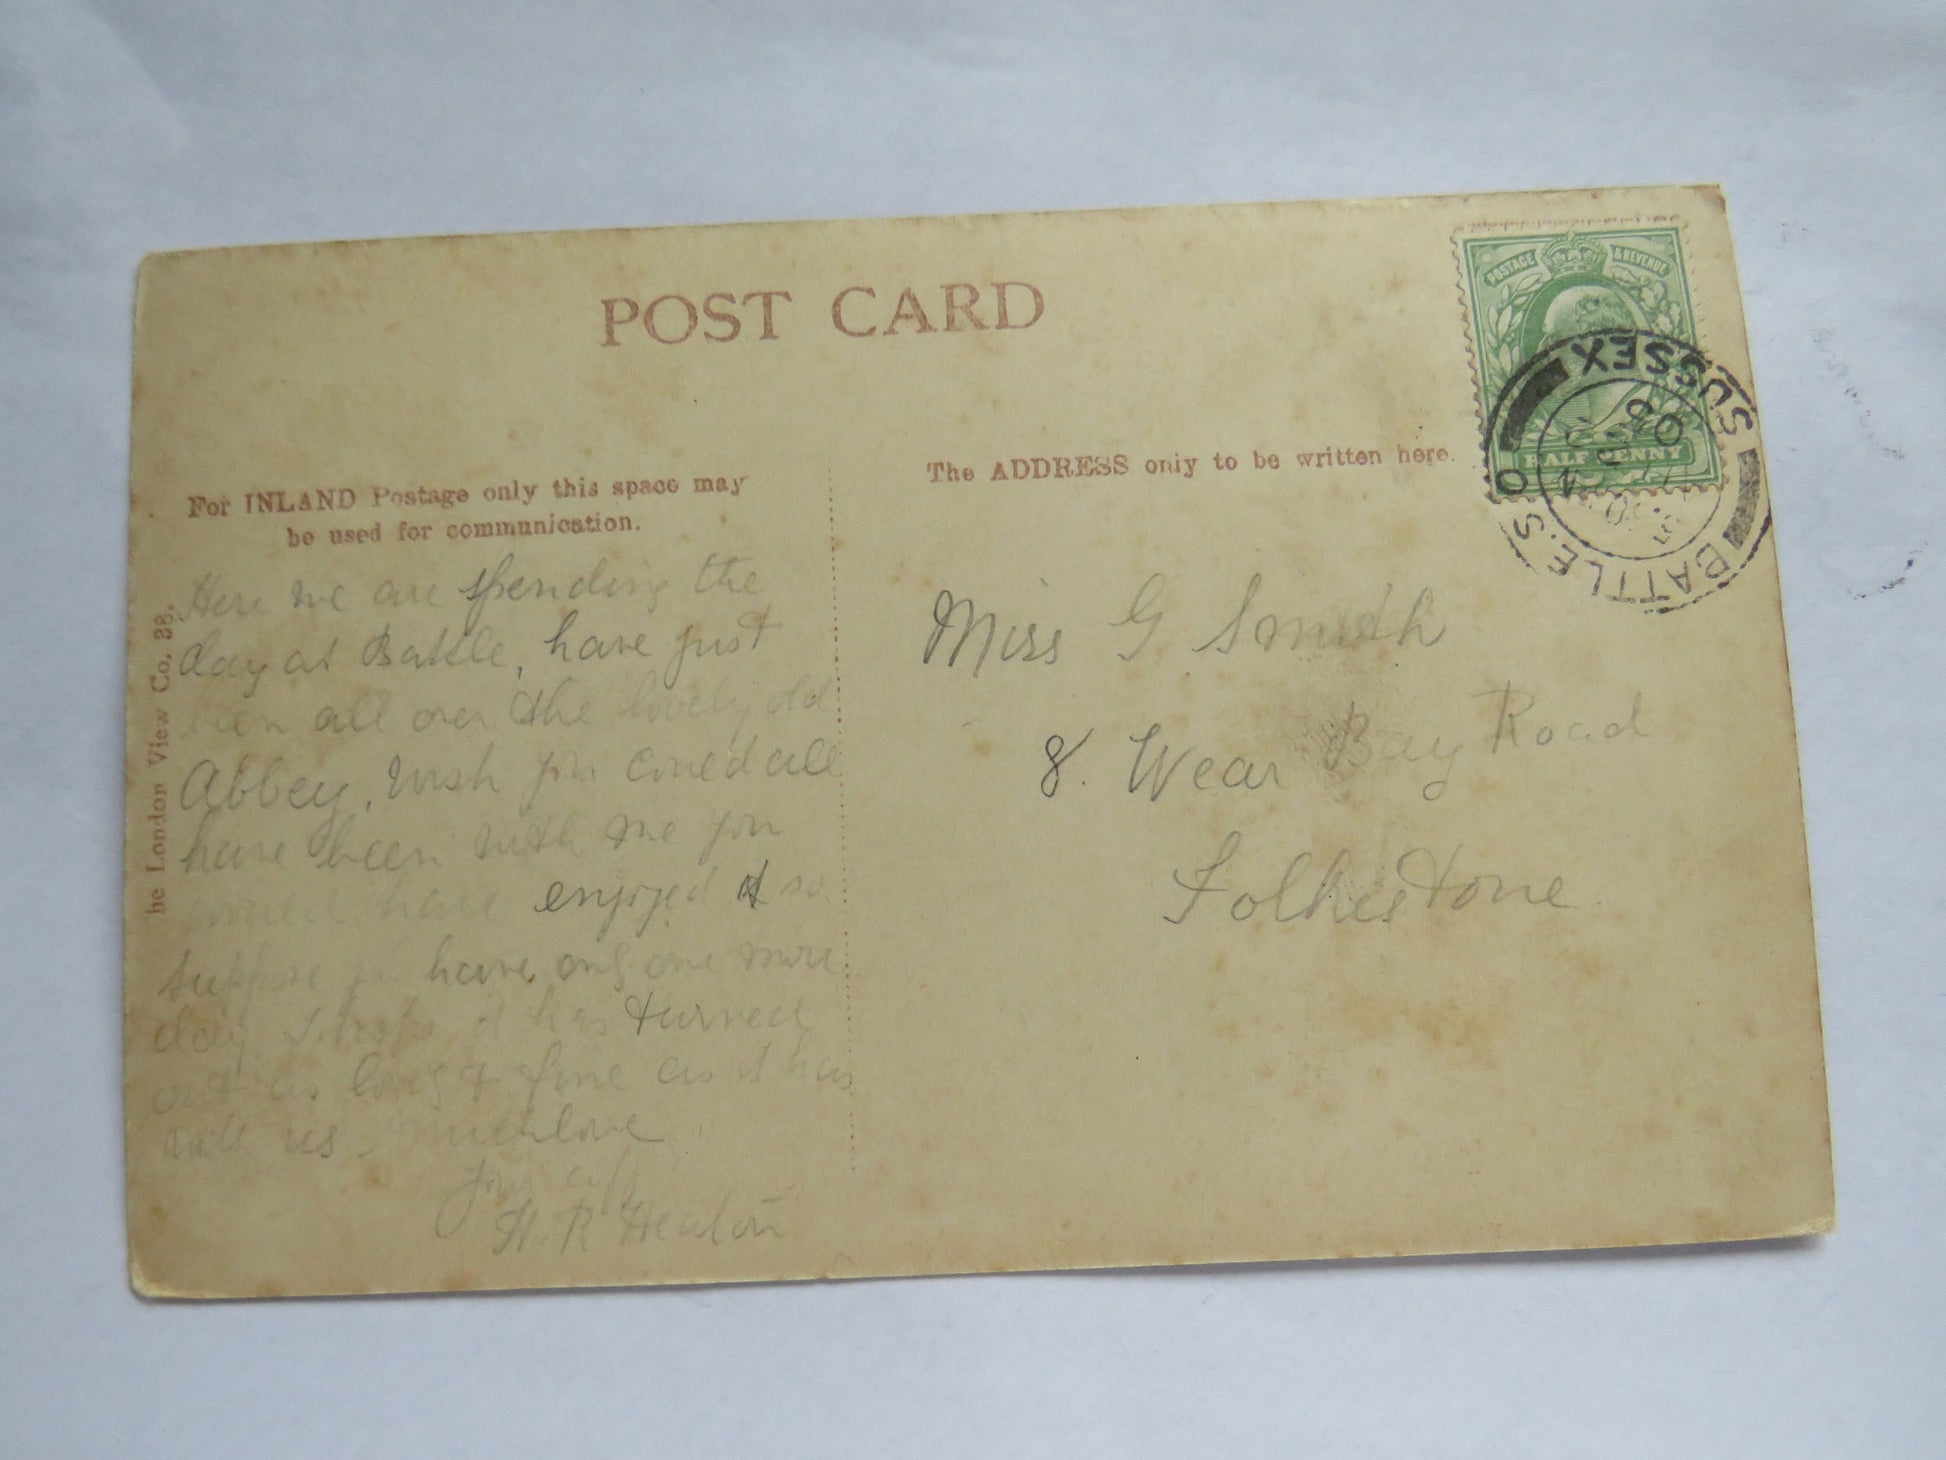 POST CARD
POSTAGE & REVENUE
HALFPENNY
BATTLE.S.O
SUSSEX
For INLAND Postage only this space may
be used for communication.
The ADDRESS only to be written here.
he London View Co. 38.
Here we are spending the
day at Battle, have just
been all over the lovely old
Abbey, wish you coued all
have been with me you
woued have enjoyed it so
suppose you have only one more
day. I hope it has turned
out as lovely & fine as it has
with us. Much love
Your
H. R Heaton
Miss G Smith
8. Wear Bay Road
Folkestone